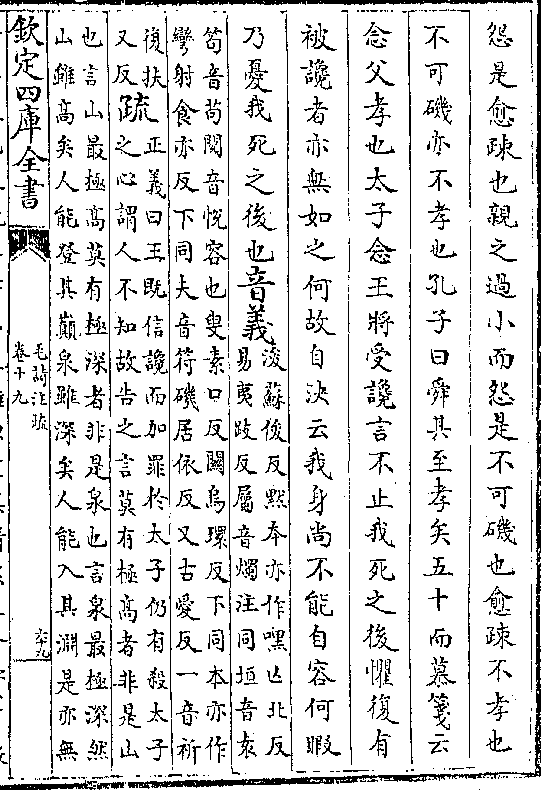 怨是愈踈也親之過小而怨是不可磯也愈踈不孝也
不可磯亦不孝也孔子曰舜其至孝矣五十而慕箋云
念父孝也太子念王將受讒言不止我死之後懼復有
被讒者亦無如之何故自決云我身尚不能自容何暇
乃憂我死之後也音義
浚蘇俊反黙本亦作嘿亡北反
易夷跂反屬音燭注同垣音袁
笱音苟閱音悅容也叟素口反關烏環反下同本亦作
彎射食亦反下同夫音符磯居依反又古愛反一音祈
復扶
又反
疏
正義曰王既信讒而加罪於太子仍有殺太子
之心謂人不知故告之言莫有極高者非是山
也言山最極高莫有極深者非是泉也言泉最極深然
山雖高矣人能登其巔泉雖深矣人能入其淵是亦無
欽定四庫全書
毛詩注疏
卷十九